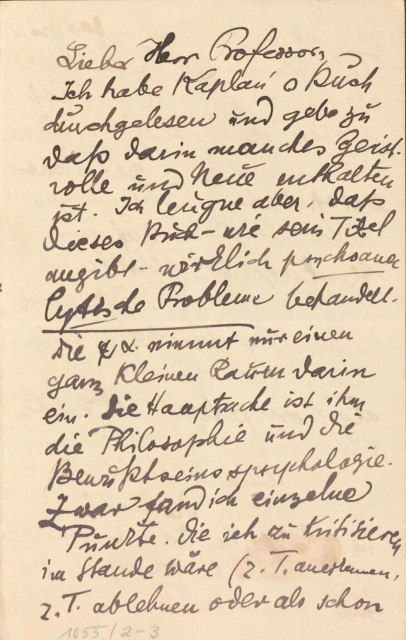 Lieber Herr Professor,
Ich habe Kaplan's Buch
durchgelesen und gebe zu
daß darin manches Geist-
volle und Neue enthalten
ist. Ich leugne aber, daß
dieses Buch - wie sein Titel
angibt - wirklich psychoana-
lytische Probleme behandelt.
Die ψα. nimmt nur einen
ganz kleinen Raum darin
ein. Die Hauptsache ist ihm
die Philosophie und die
Bewußtseinspsychologie.
Zwar fand ich einzelne
Punkte, die ich zu kritisieren
im Stande wäre (z. T. anerkennen,
z. T. ablehnen oder als schon
1055/2-3